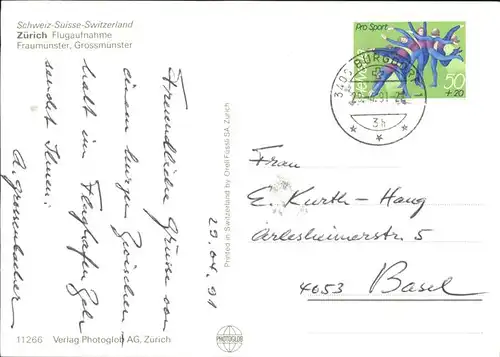 Schweiz-Suisse-Switzerland
Zürich Flugaufnahme
Fraumünster, Grossmünster
Freundlichen Grüsse von
einem kurzen Zwischen
halt im Flughafen
sendet Ihnen:
A. Grossenbacher
29.04.91
Printed in Switzerland by Orell Füssli SA, Zürich
11266 Verlag Photoglob AG, Zürich
PHOTOGLOB
Pro Sport
50
+20
3400 BURGDORF
3h
Frau
E. Kurth-Haug
Arlesheimerstr. 5
4053 Basel